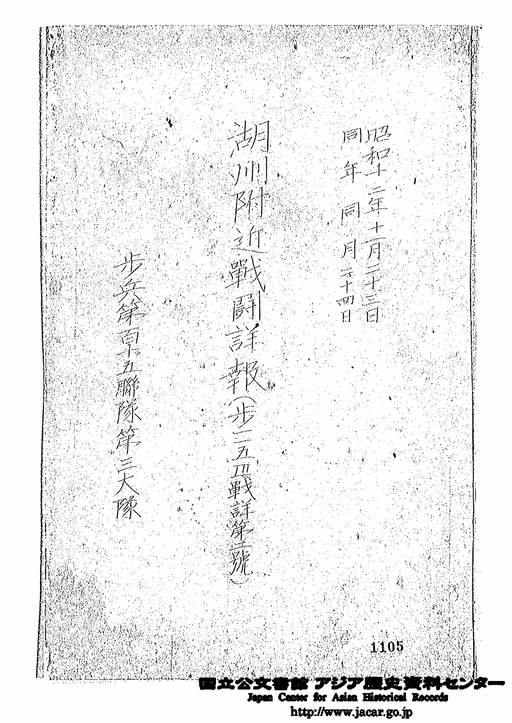 昭和十二年十一月二十三日
同年同月二十四日
湖州附近戰鬪詳報(步一一五Ⅲ戰詳第三號)
步兵第百十五聯隊第三大隊
1105
国立公文書館 アジア歴史資料センター
Japan Center for Asian Historical Records
http://www.jacar.go.jp